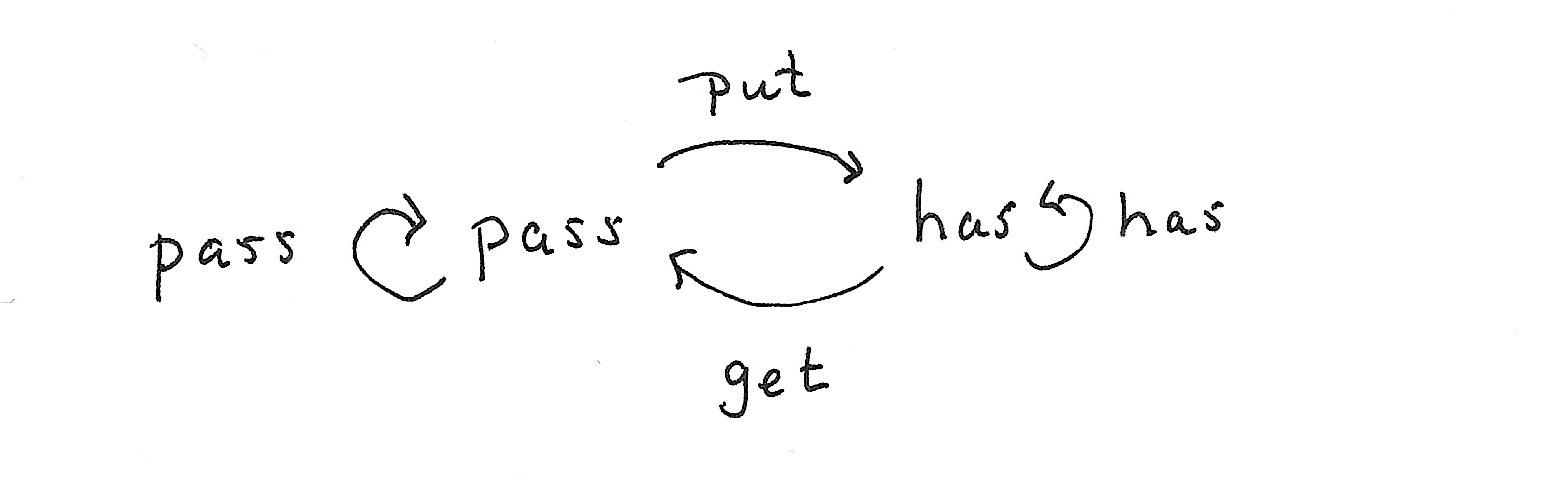 put
pass pass has has
get